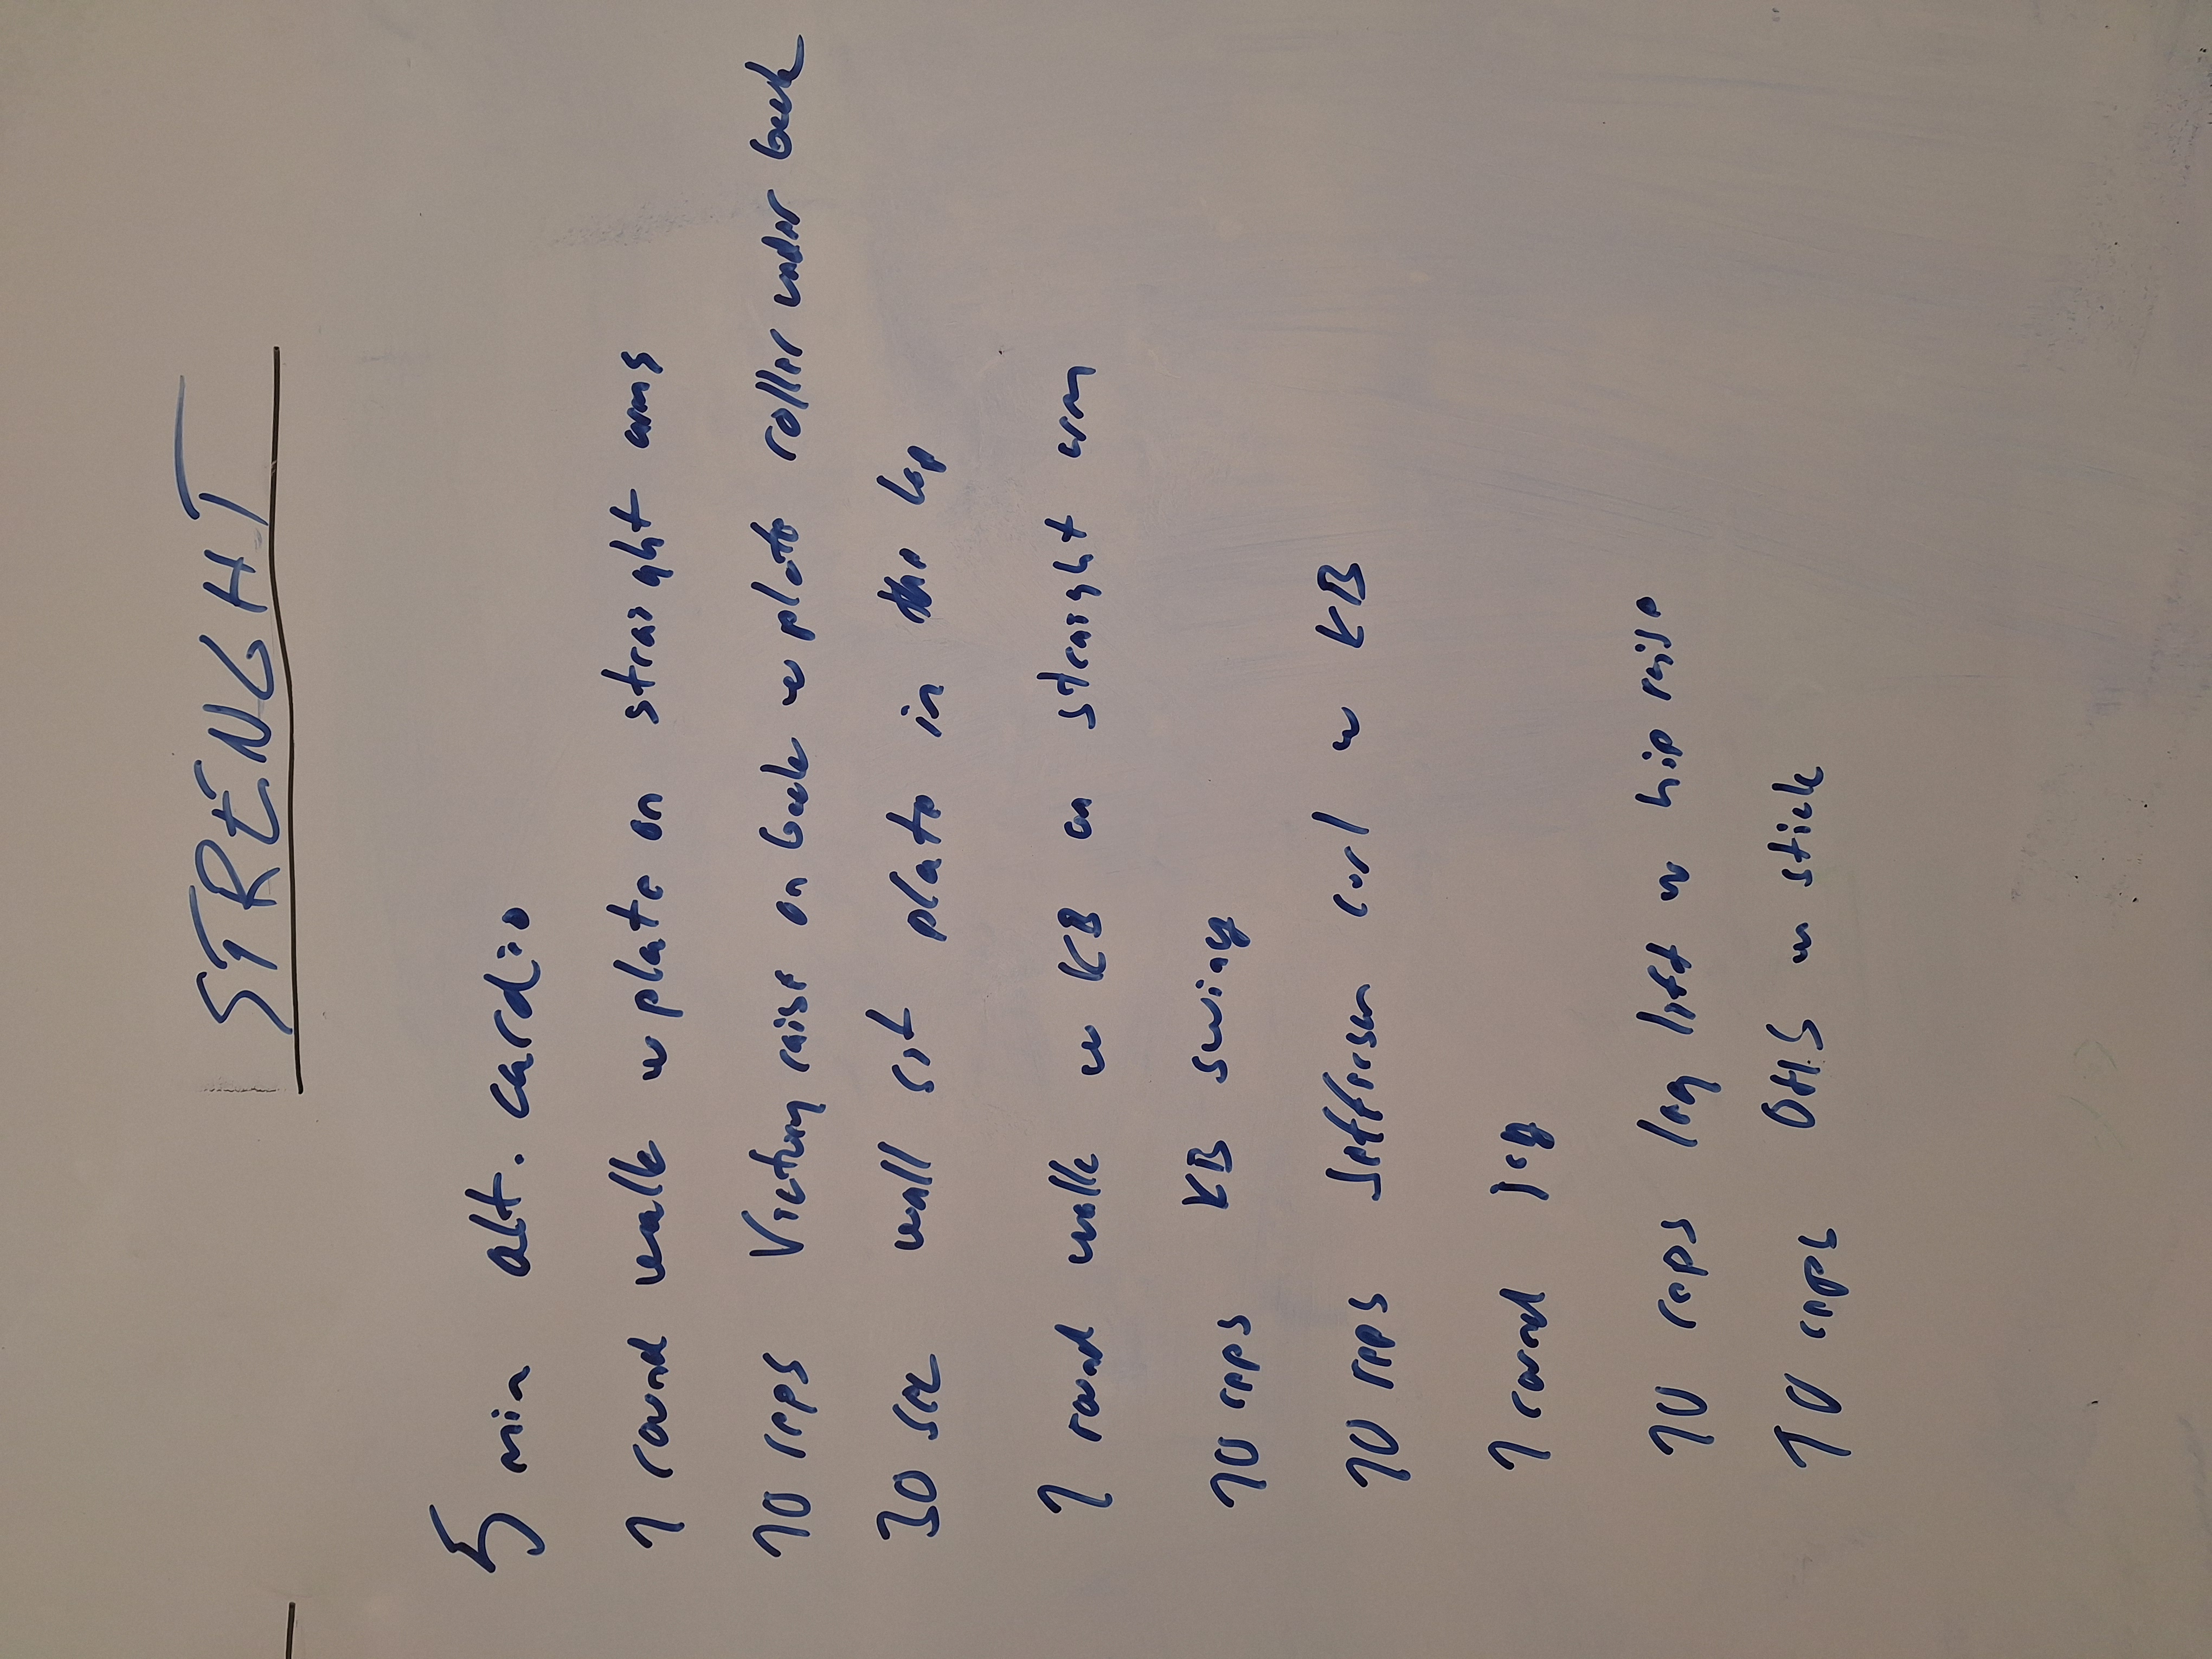 STRENGHT
5 min alt. cardio
1 round walk w plate on straight arms
10 reps Victory raise on back w plate roller under back
30 sec wall sit plate in the lap
1 round walk w KB on straight arm
10 reps KB swing
10 reps Jefferson curl w KB
1 round jog
10 reps leg lift w hip raise
10 reps OHS w stick